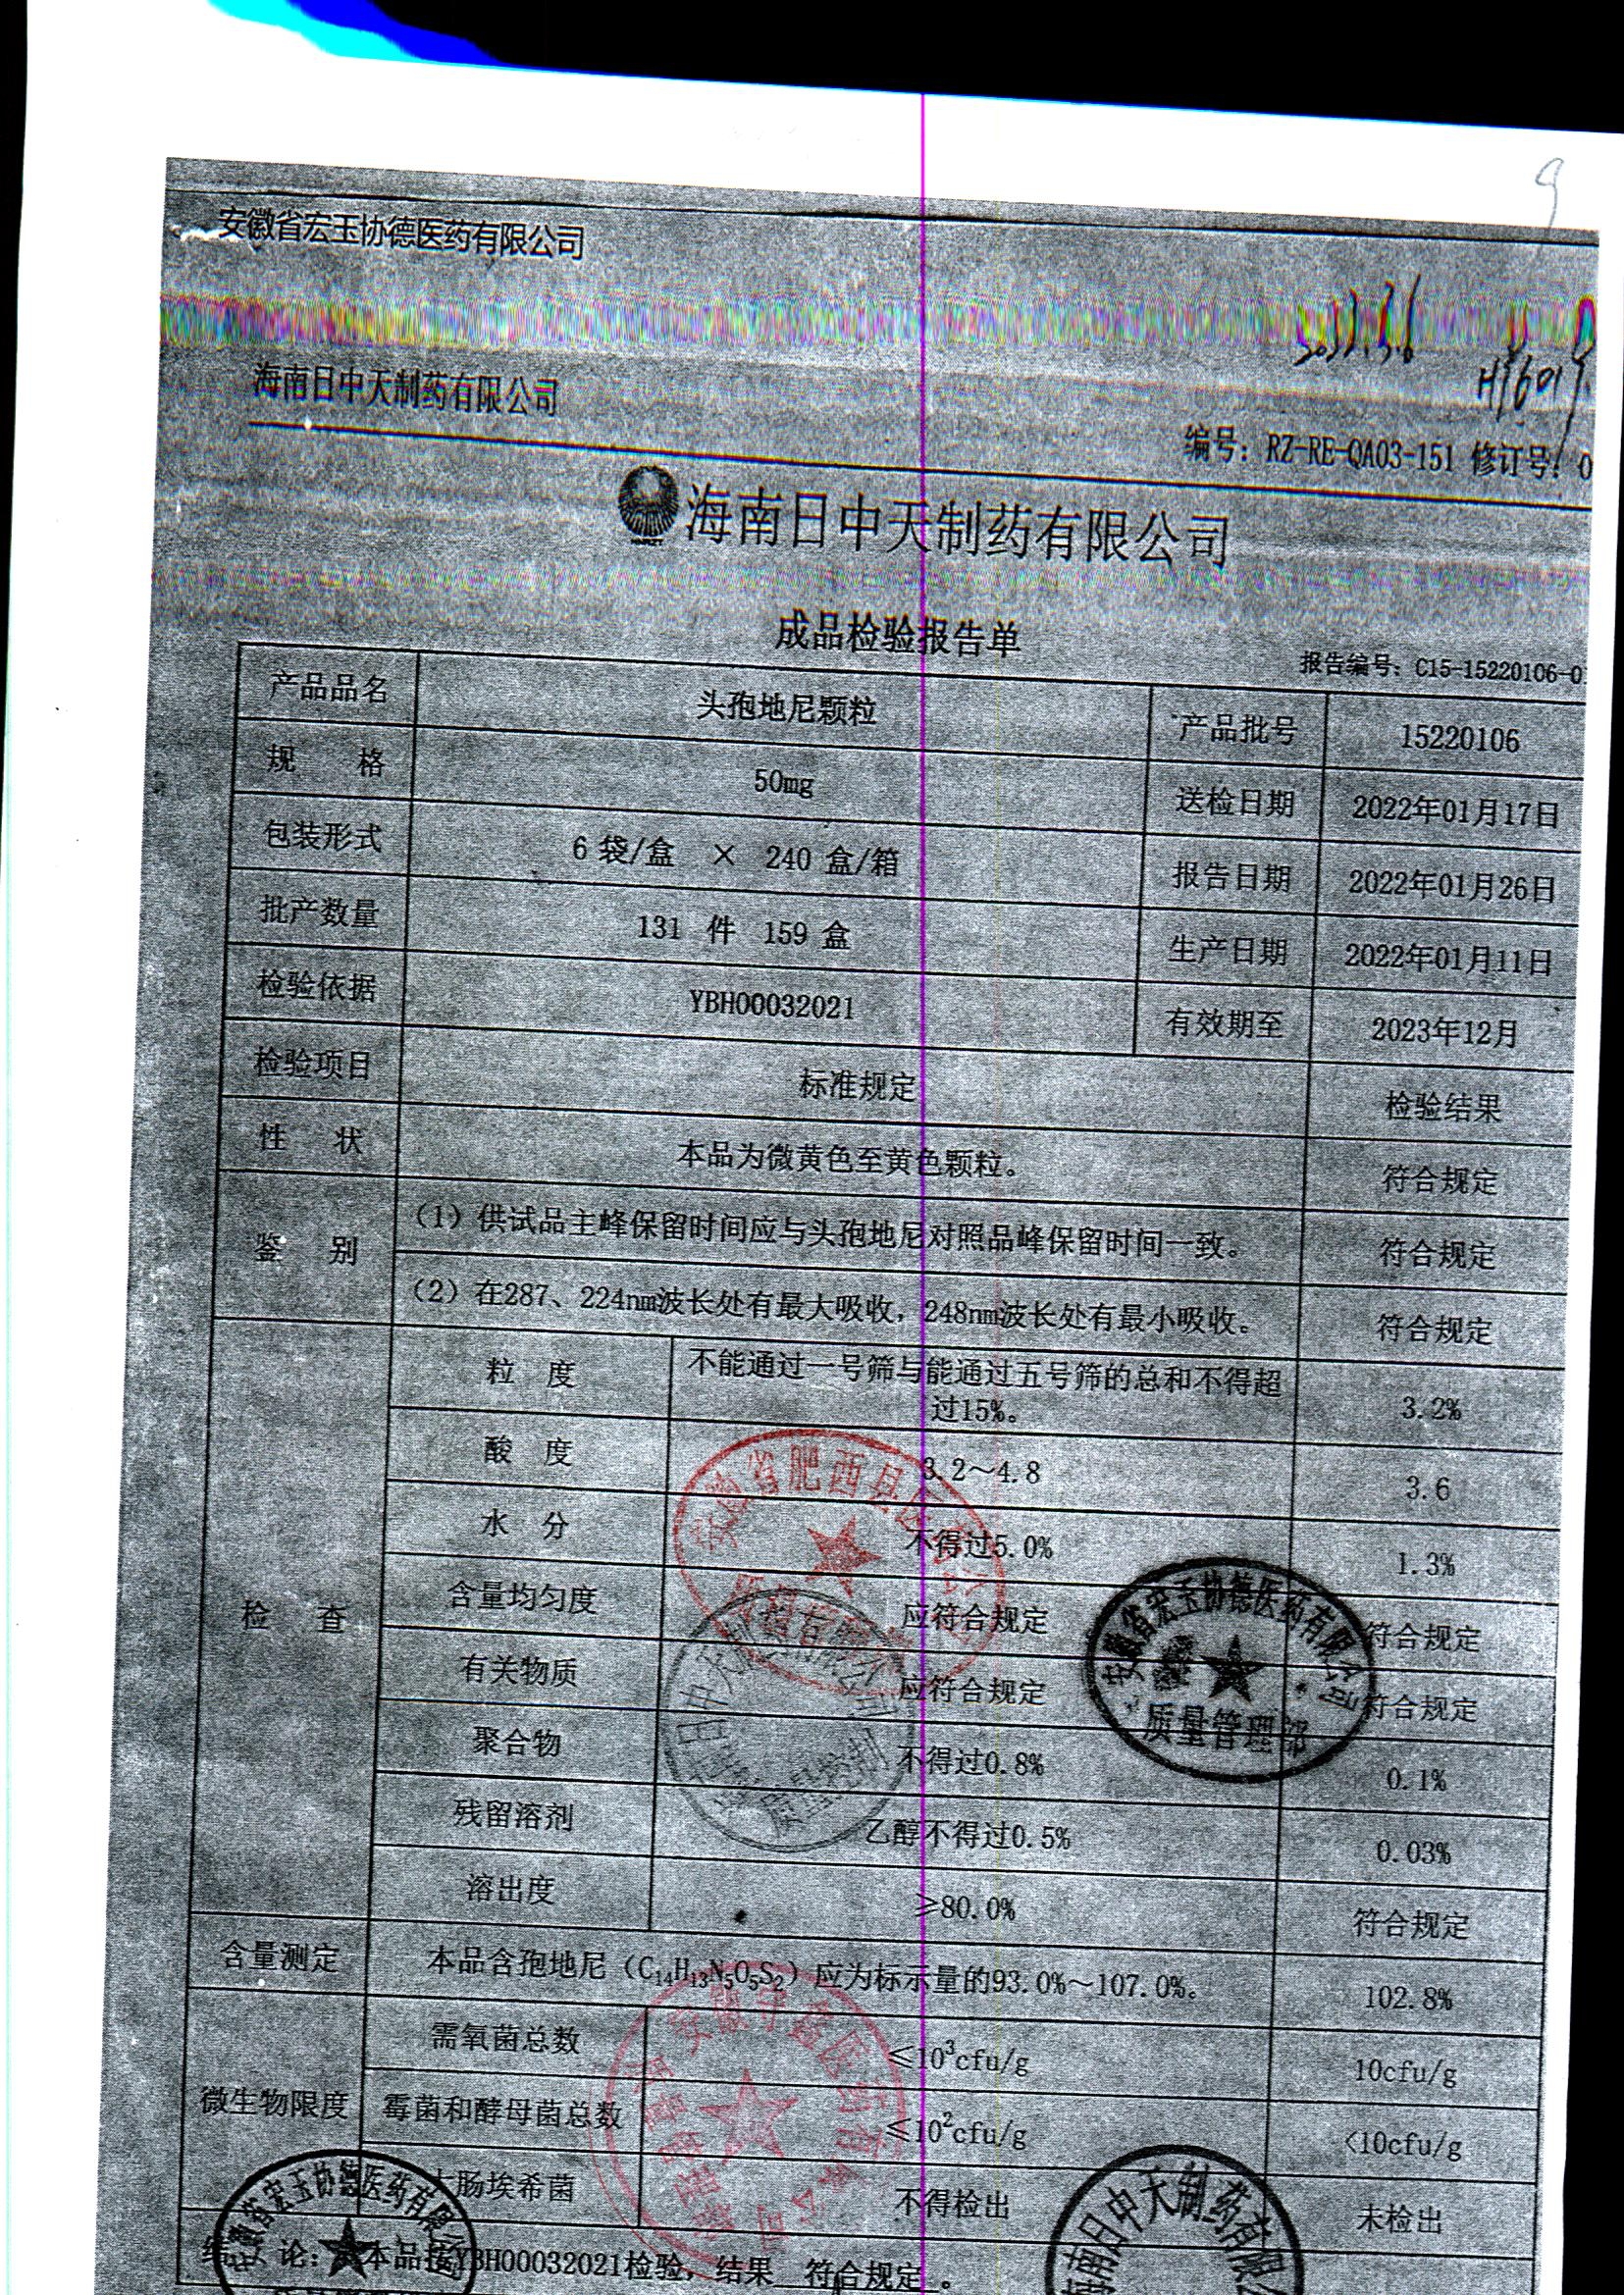 安徽省宏玉协德医药有限公司
海南日中天制药有限公司
编号：RZ-RE-QA03-151 修订号：0
海南日中天制药有限公司
成品检验报告单
报告编号：C15-15220106-0
产品品名 头孢地尼颗粒 产品批号 15220106
规 格 50mg 送检日期 2022年01月17日
包装形式 6 袋/盒 × 240 盒/箱 报告日期 2022年01月26日
批产数量 131 件 159 盒 生产日期 2022年01月11日
检验依据 YBH00032021 有效期至 2023年12月
检验项目 标准规定 检验结果
性 状 本品为微黄色至黄色颗粒。 符合规定
鉴 别 （1）供试品主峰保留时间应与头孢地尼对照品峰保留时间一致。 符合规定
（2）在287、224nm波长处有最大吸收，248nm波长处有最小吸收。 符合规定
检 查 粒 度 不能通过一号筛与能通过五号筛的总和不得超
过15%。 3.2%
酸 度 3.2～4.8 3.6
水 分 不得过5.0% 1.3%
含量均匀度 应符合规定 符合规定
有关物质 应符合规定 符合规定
聚合物 不得过0.8% 0.1%
残留溶剂 乙醇不得过0.5% 0.03%
溶出度 ≥80.0% 符合规定
含量测定 本品含孢地尼（C₁₄H₁₃N₅O₅S₂）应为标示量的93.0%～107.0%。 102.8%
微生物限度 需氧菌总数 ≤10³cfu/g 10cfu/g
霉菌和酵母菌总数 ≤10²cfu/g <10cfu/g
大肠埃希菌 不得检出 未检出
结 论： 本品按YBH00032021检验，结果 符合规定 。
安徽省宏玉协德医药有限公司
质量管理部
安徽省宏玉协德医药有限公司